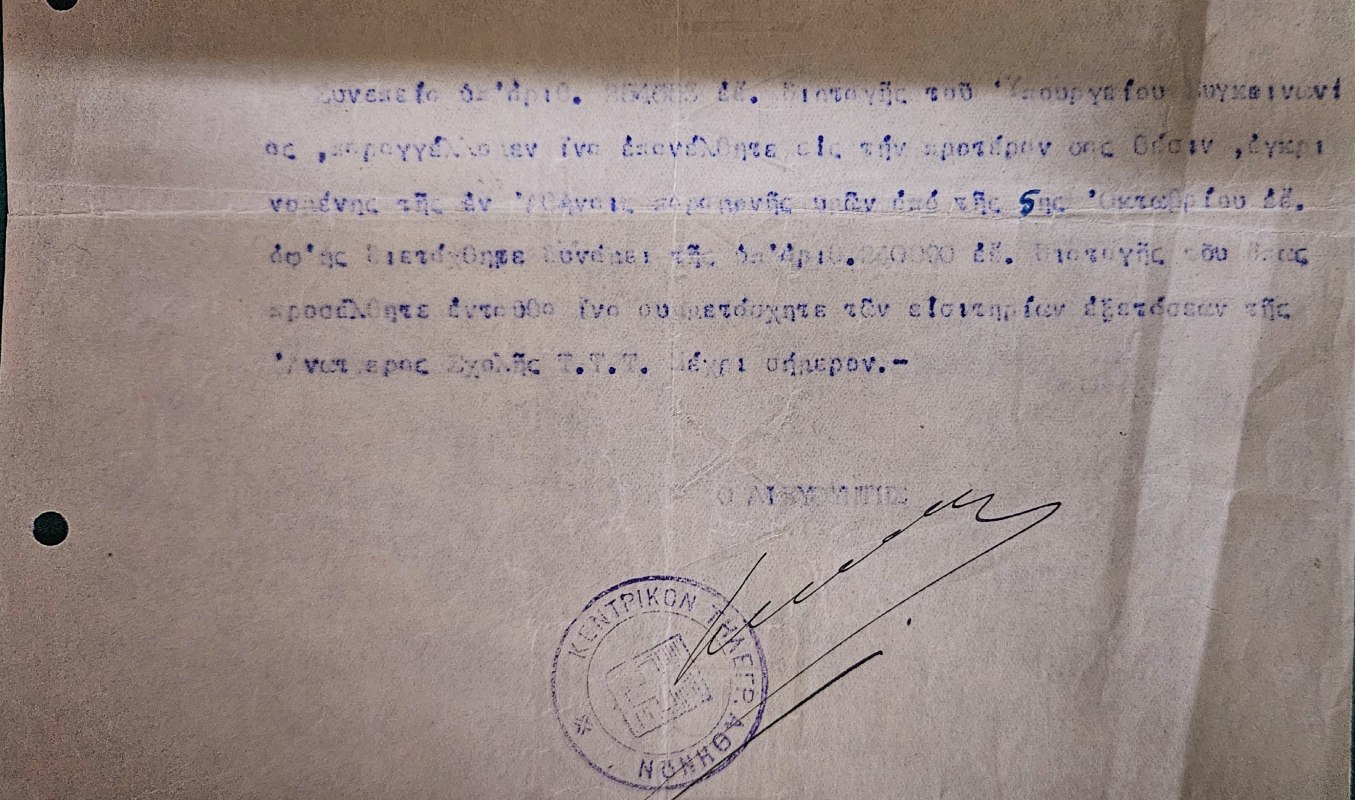 Συνεπείᾳ ὑπ'ἀριθ. ἐἔ. διαταγῆς τοῦ Ὑπουργείου Συγκοινωνί
ας ,παραγγέλλομεν ἵνα ἐπανέλθητε εἰς τήν προτέραν σας θέσιν ,ἐγκρι
νομένης τῆς ἐν Ἀθήναις παραμονῆς ὑμῶν ἀπό τῆς 5ης Ὀκτωβρίου ἐἔ.
ἀφ'ἧς διετάχθητε δυνάμει τῆς ὑπ'ἀριθ. ἐἔ. διαταγῆς τοῦ ὅπως
προσέλθητε ἐνταῦθα ἵνα συμμετάσχητε τῶν εἰσιτηρίων ἐξετάσεων τῆς
Ἀνωτέρας Σχολῆς Τ.Τ.Τ. μέχρι σήμερον.-
Ο ΔΙΕΥΘΥΝΤΗΣ
ΚΕΝΤΡΙΚΟΝ ΤΗΛΕΓΡ. ΑΘΗΝΩΝ